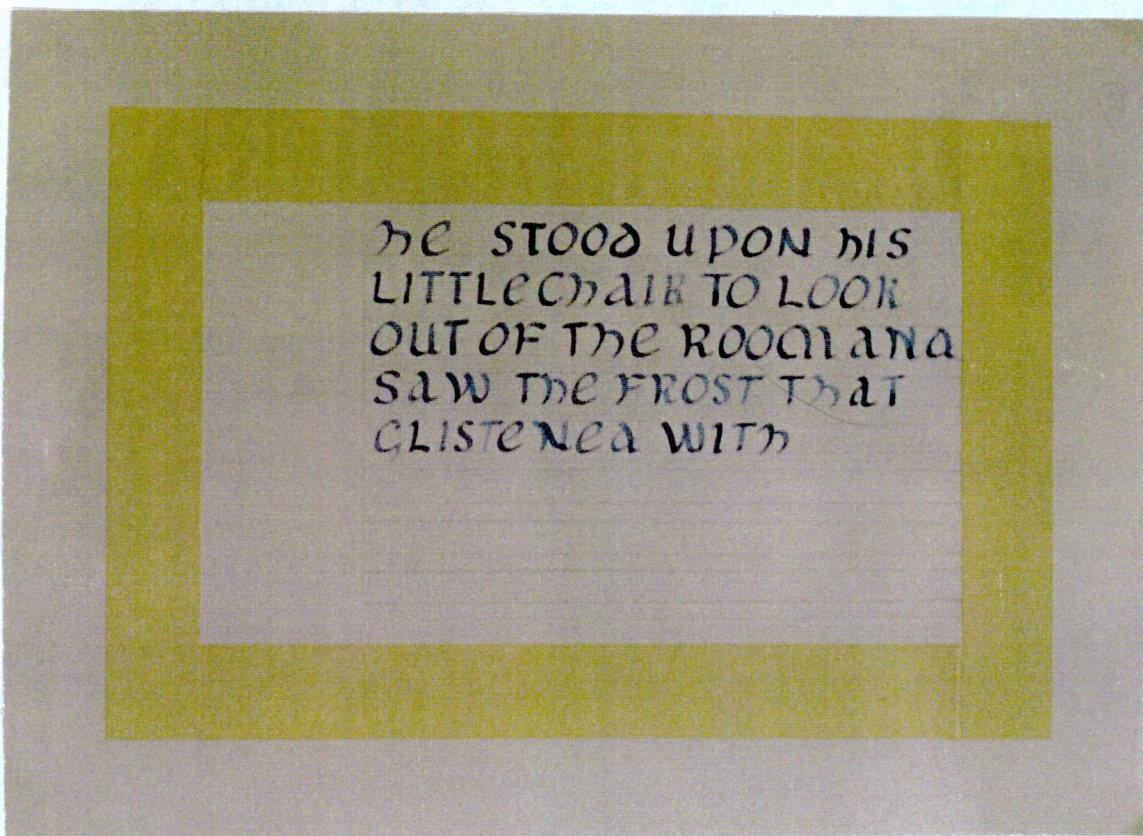 he STOOd UPON hIS
LITTLE ChaIR TO LOOK
OUT OF The ROOM aNd
SaW The FROST ThaT
GLISTENed WITh